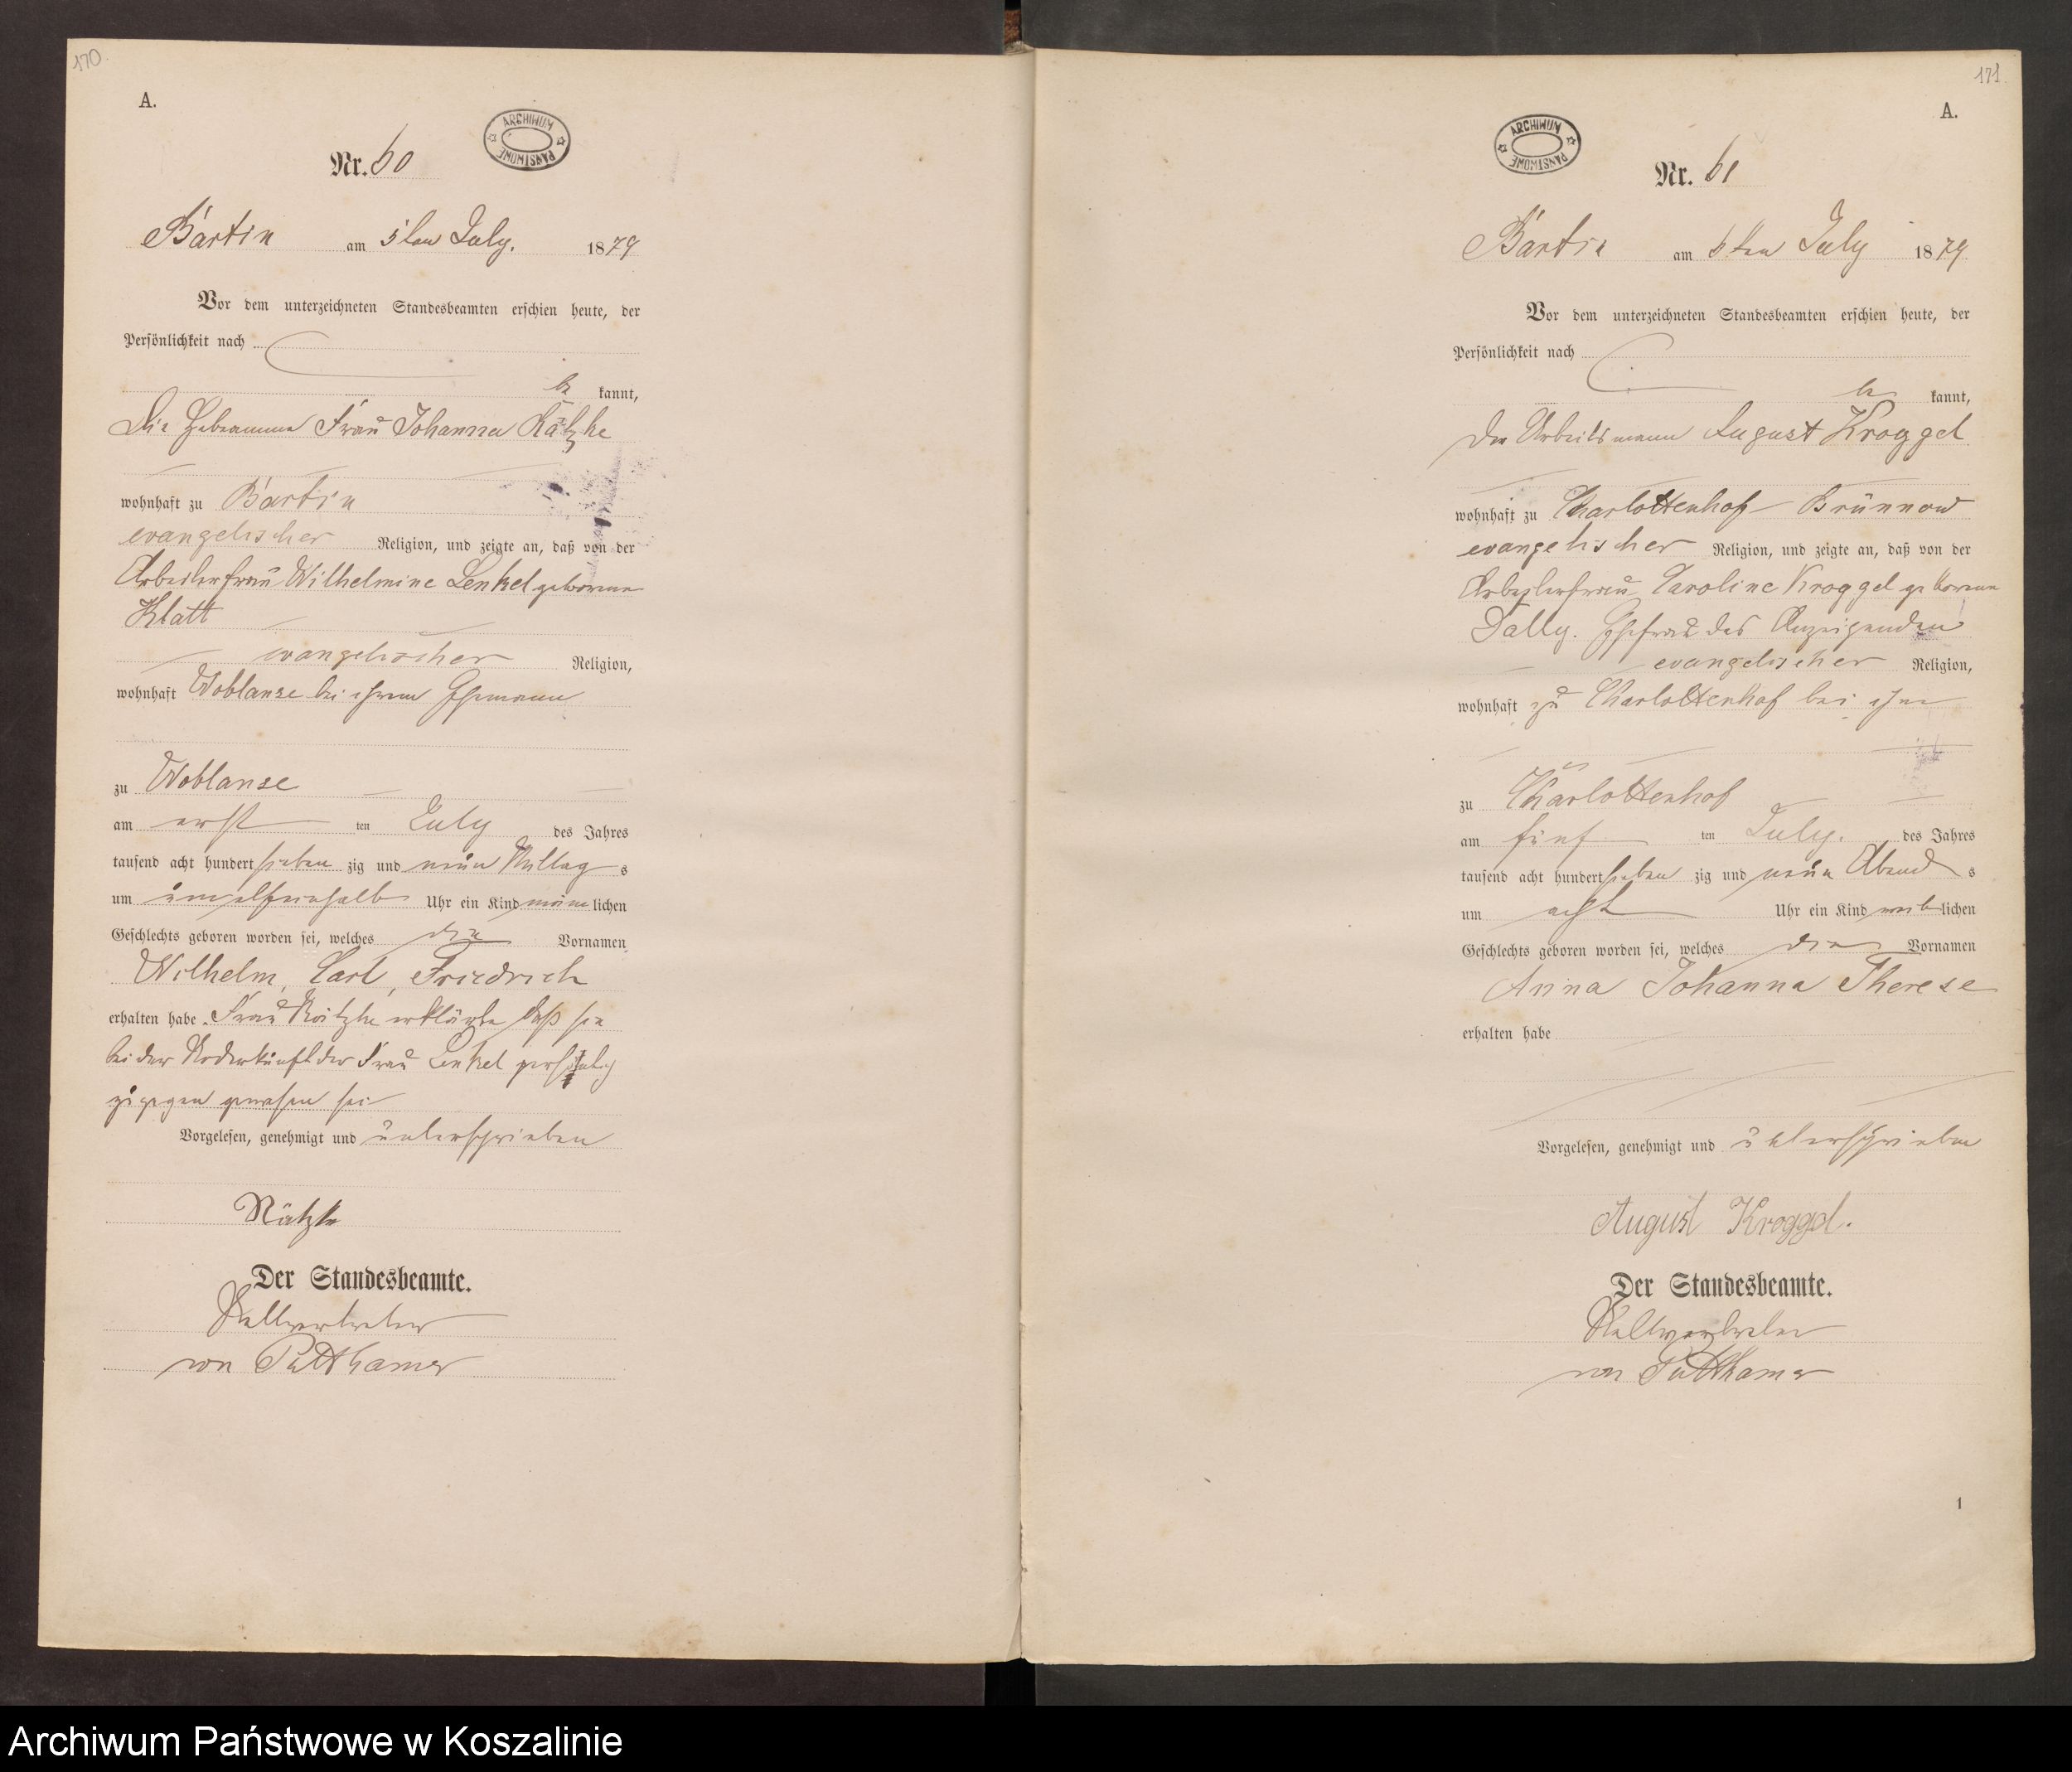 170.
A.
ARCHIWUM PAŃSTWOWE
Nr. 60
Bartin am 5ten July. 1879
Vor dem unterzeichneten Standesbeamten erschien heute, der
Persönlichkeit nach
be kannt,
die Hebeamme Frau Johanna Rätzke
wohnhaft zu Bartin
evangelischer Religion, und zeigte an, daß von der
Arbeiterfrau Wilhelmine Lenkel geborene
Klatt
evangelischer Religion,
wohnhaft Woblanse bei ihrem Ehemann
zu Woblanse
am erst ten July des Jahres
tausend acht hundert sieben zig und neun Mittag s
um Uhr ein Kind männ lichen
Geschlechts geboren worden sei, welches die Vornamen
Wilhelm, Carl, Friedrich
erhalten habe. Frau Rätzke erklärte daß sie
bei der Niederkunft der Frau Lenkel persönlich
zugegen gewesen sei
Vorgelesen, genehmigt und unterschrieben
Rätzke
Der Standesbeamte.
Stellvertreter
von Puttkamer
171.
A.
ARCHIWUM PAŃSTWOWE
Nr. 61
Bartin am 6ten July 1879.
Vor dem unterzeichneten Standesbeamten erschien heute, der
Persönlichkeit nach
be kannt,
der Arbeitsmann August Kroggel
wohnhaft zu Charlottenhof Brünnow
evangelischer Religion, und zeigte an, daß von der
Arbeiterfrau Caroline Kroggel geborene
Dally. Ehefrau des Anzeigenden
evangelischer Religion,
wohnhaft zu Charlottenhof bei ihm
zu Charlottenhof
am fünf ten July. des Jahres
tausend acht hundert sieben zig und neun Abend s
um acht Uhr ein Kind weib lichen
Geschlechts geboren worden sei, welches die Vornamen
Anna Johanna Therese
erhalten habe
Vorgelesen, genehmigt und unterschrieben
August Kroggel.
Der Standesbeamte.
Stellvertreter
von Puttkamer
1
Archiwum Państwowe w Koszalinie